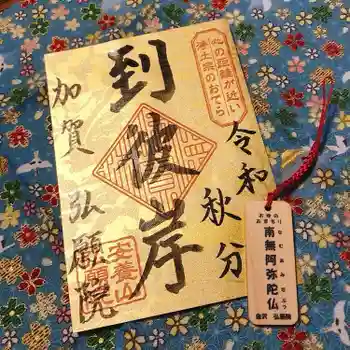 心の距離が近い
浄土宗のおてら
令和
秋分
到彼岸
加賀 弘願院
安養山
お寺の
お香まもり
南無阿弥陀仏
なむあみだぶつ
金沢 弘願院